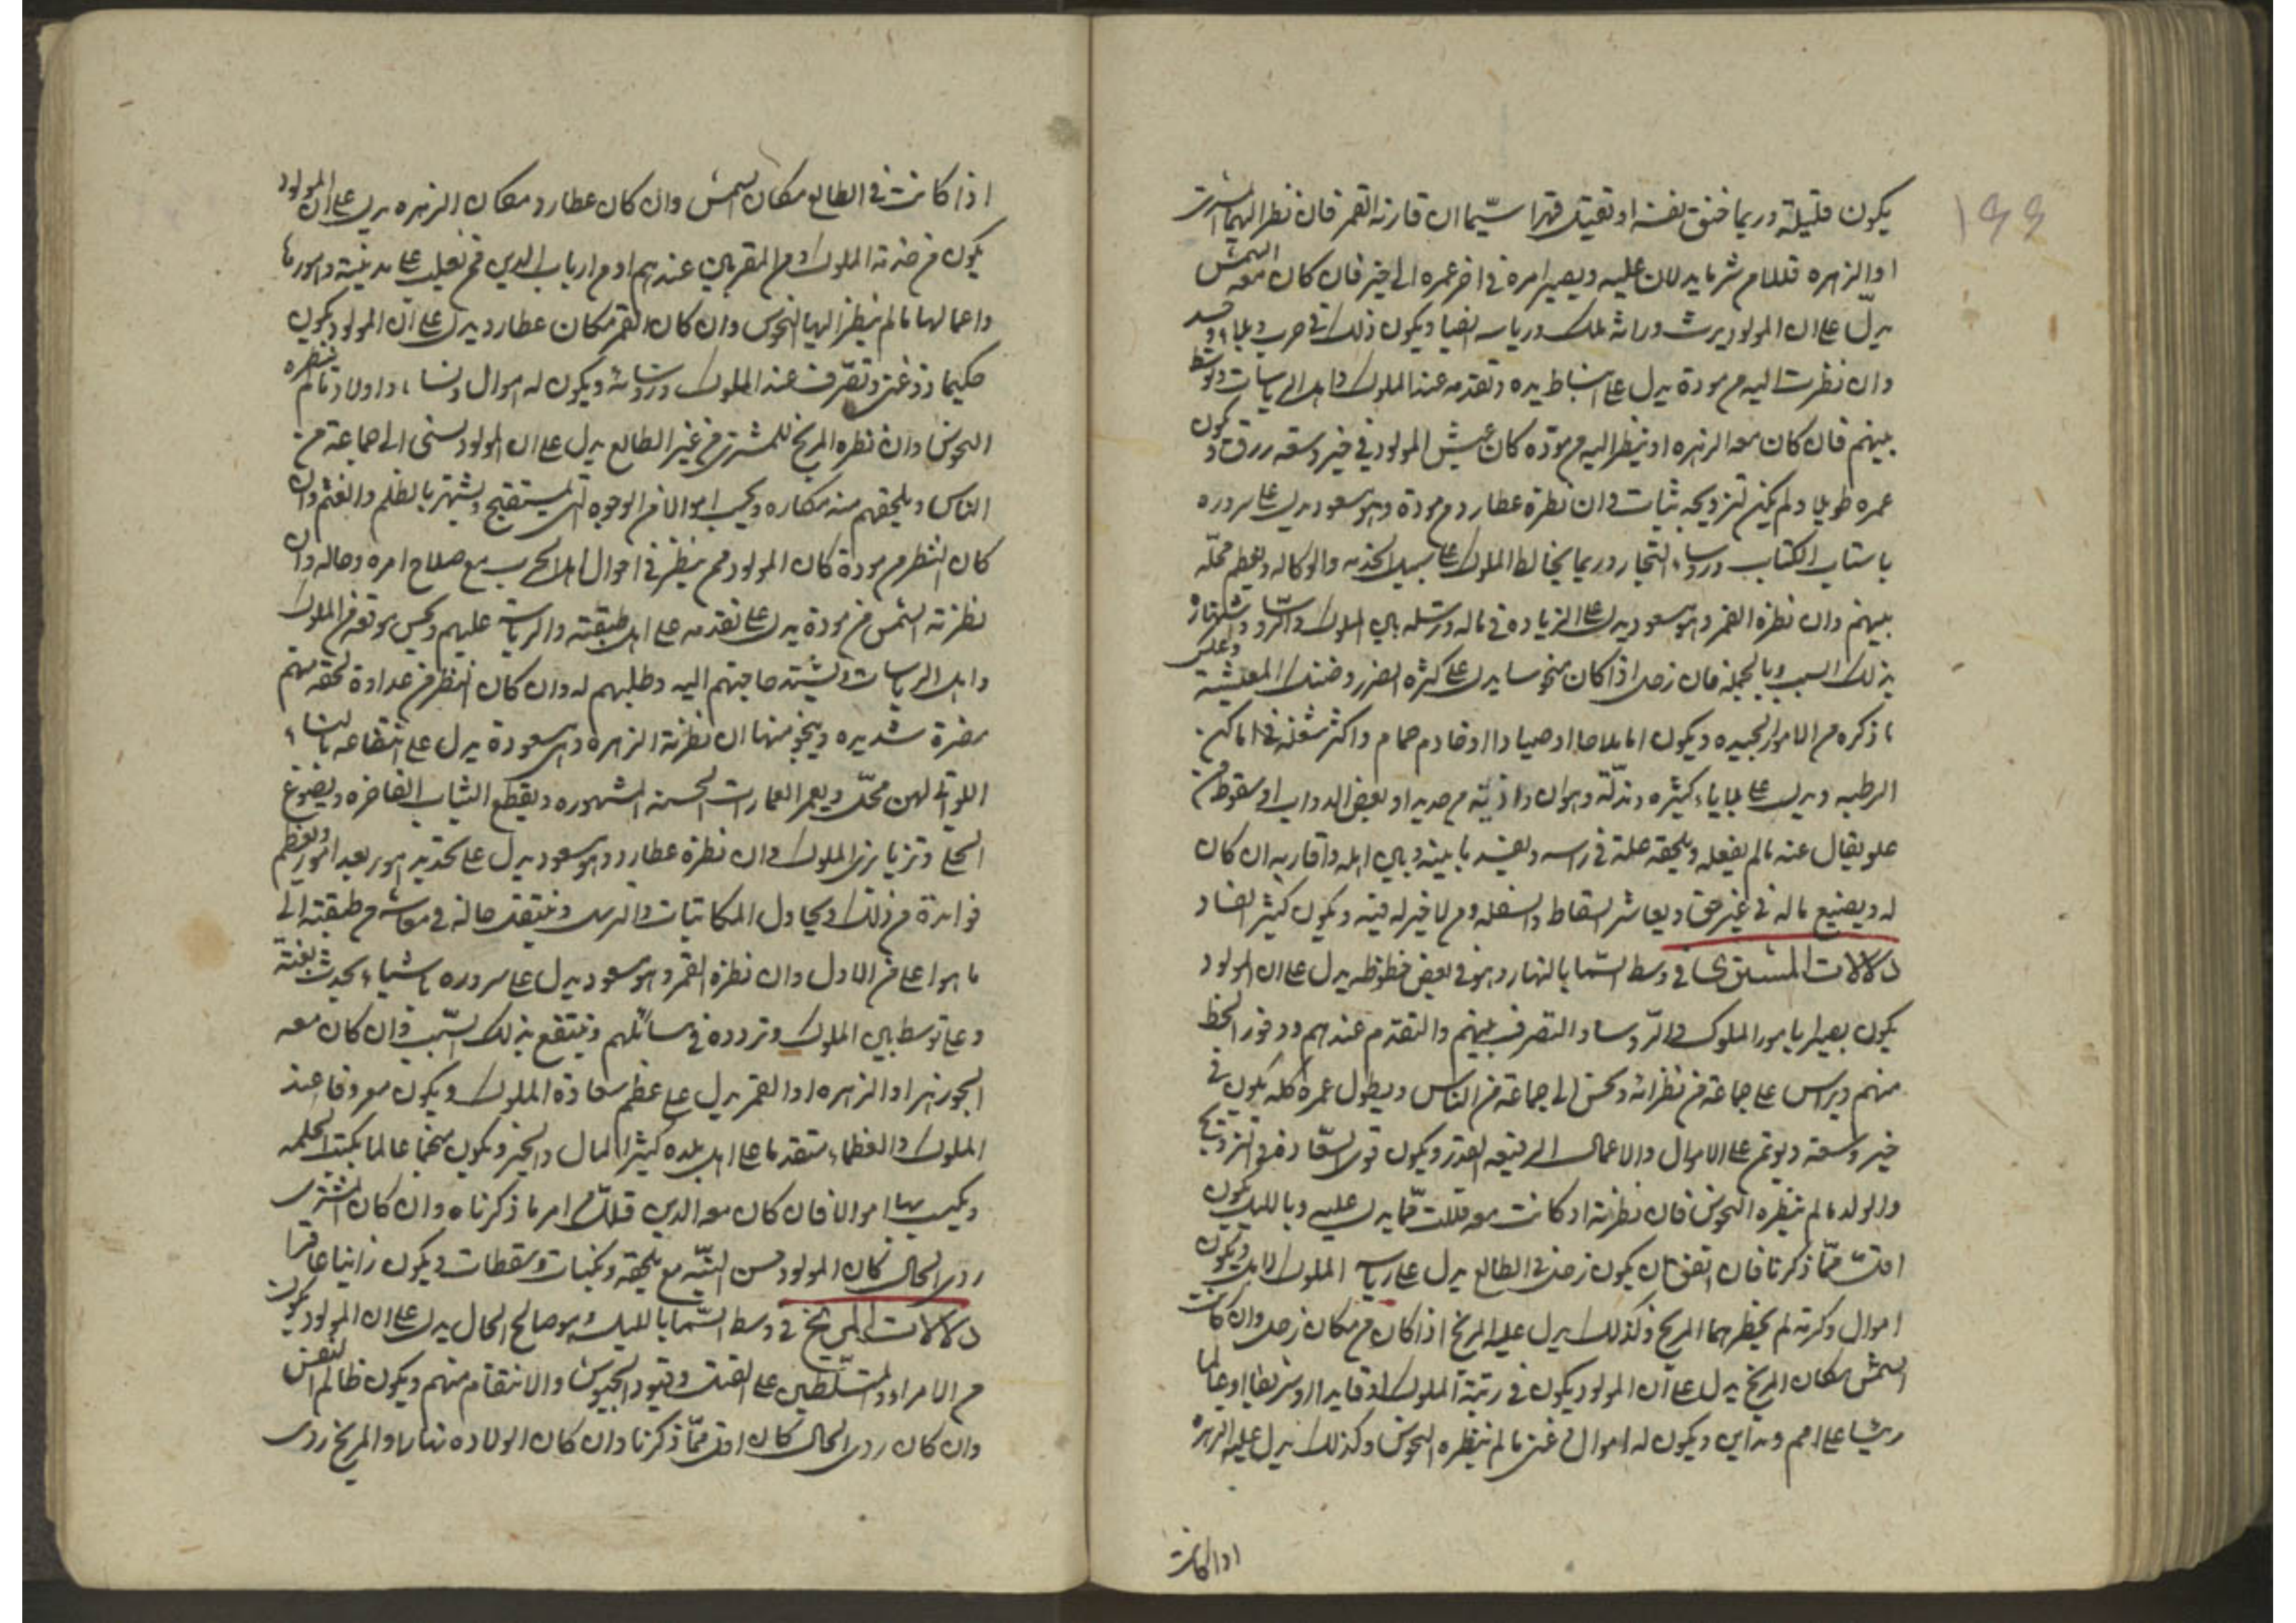 ١٩٩
يكون قليلة وربما خنق نفسه او يقتل قهرا سيّما ان قارنه القمر فان نظر اليهما المشترى
او الزهره قللا من شر ما يدلان عليه ويصير امره فى اخر عمره الى خير فان كان معه الشمس
يدلّ على ان المولود يرث وراثة ملك ورياسه ايضا ويكون ذلك فى حرب وبلاء
وان نظرت اليه من مودة يدل على انبساط يده وتقدمه عند الملوك واهل الرياسات وتوسّط
بينهم فان كان معه الزهره او ينظر اليه من مودّه كان عيش المولود فى خير وسعه ورزق ويكون
عمره طويلا ولم يكن لتزويجه ثبات وان نظره عطارد من مودة وهو مسعود يدل على سروره
باسباب الكتاب وروساء التجار وربما يخالط الملوك على سبيل الخدمه والوكاله ويعظم محلّه
بينهم وان نظره القمر وهو مسعود يدل على الزيادة فى ماله وترسّله بين الملوك والرّوسا واشتهاره
بذلك السبب وبالجملة فان زحل اذا كان منحوسا يدل على كثرة الضرر وضنك المعيشة وعكس
ما ذكره من الامور الجيده ويكون اما ملاحا او صيادا او خادم حمام واكثر شغله فى اماكن
الرطبه ويدل على بلايا كثيره ومذلّة وهوان واذيّة من حديد او بعض الدواب او سقوط من
علو يقال عنه ما لم يفعله ويلحقه علة فى راسه ويفسد ما بينه وبين اهله واقاربه ان كان
له ويضيع ماله فى غير حق ويعاشر السقاط والسفله ومن لا خير له فيه ويكون كثير الفساد
دلالات المشترى فى وسط السّما بالنهار وهو فى بعض حظوظه يدل على ان المولود
يكون بصيرا بامور الملوك والرّوسا والتصرف بينهم والتقدّم عندهم ووفور الحظ
منهم ويراس على جماعة من نظرائه ويحسن الى جماعة من الناس ويطول عمره كله يكون فى
خير وسعة ويوتمن على الاموال والاعمال الرفيعه القدر ويكون قوى السعادة فى التزويج
والولد ما لم ينظره النحوس فان نظرته او كانت معه قللت ممّا يدل عليه وبالليل يكون
اقلّ ممّا ذكرنا فان اتفق ان يكون زحل فى الطالع يدل على رياسه الملوك لاهل ويكون
اموال وكرته لم ينظر هما المريخ وكذلك يدل عليه المريخ اذا كان فى مكان زحل وان كانت
الشمس مكان المريخ يدل على ان المولود يكون فى رتبة الملوك او قايدا او شريفا او عالما
رئيسا على امم ومداين ويكون له اموال فى غنى ما لم ينظره النحوس وكذلك يدل عليه الزهرة
اذا كانت
اذا كانت فى الطالع مكان الشمس وان كان عطارد مكان الزهره يدل على ان المولود
يكون من خزنة الملوك ومن المقربين عندهم او من ارباب الدين فمن يغلب على مدينة وامورها
واعمالها ما لم ينظر اليها النحوس وان كان القمر مكان عطارد يدل على ان المولود يكون
حكيما وذو غنى وتصّرف عند الملوك وروسائه ويكون له اموال ونساء واولاد ما لم ينظره
النحوس وان نظره المريخ للمشترى من غير الطالع يدل على ان المولود يسئى الى جماعة من
الناس ويلحقهم منه مكاره ويكسب اموالا من الوجوه التى تستقبح ويشتهر بالظلم والغشم وان
كان النظر من مودة كان المولود ممن ينظر فى احوال اهل الحرب مع صلاح امره وحاله وان
نظرته الشمس من مودة يدل على تقدمه على اهل طبقته والرياسة عليهم وحسن موقعه من الملوك
واهل الرياسات وتشتد حاجتهم اليه وطلبهم له وان كان النظر من عداوة لحقه منهم
مضرة شديده وينجو منها ان نظرته الزهره وهى مسعودة يدل على انتفاعه بالنساء
اللواتى لهن محلّ ويعمر العمارات الحسنه المشهوره ويقطع الثياب الفاخره ويصوغ
الحلى وتزيا بزى الملوك وان نظره عطارد وهو مسعود يدل على تحديد امور بعد امور ويعظم
فوائده من ذلك ويحاول المكاتبات والترسل وينتقل حاله فى معاشه من طبقته الى
ما هو اعلى من الاول وان نظره القمر وهو مسعود يدل على سروره باشياء يحدث بغتة
وعلى توسط بين الملوك وتردده فى رسائلهم وينتفع بذلك السّبب وان كان معه
الجوزهر او الزهره او القمر يدل على عظم سعادة الملوك ويكون معروفا عند
الملوك والعظماء متقدما على اهل بلده كثير المال والخير ويكون منجما عالما بكتب الحكمه
ويكسب بها اموالا فان كان معه الذنب قلّل من امر ما ذكرناه وان كان المشترى
ردى الحال كان المولود حسن النيّه مع ما يلحقه ونكبات وسقطات ويكون زانيا عاقرا
دلالات المريخ فى وسط السّما بالليل وهو صالح الحال يدل على ان المولود يكون
من الامراء والمتسلّطين على القتل وقيود الجيوش والانتقام منهم ويكون ظالم النفس
وان كان ردى الحال كان اقل ممّا ذكرنا وان كان الولاده نهارا والمريخ ردى